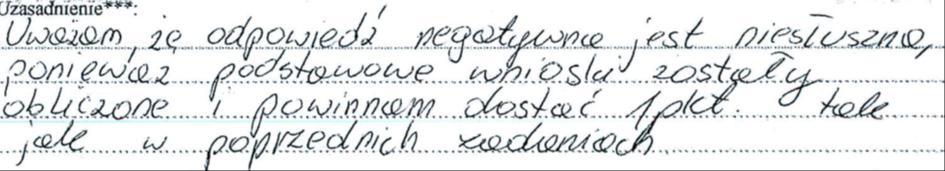 Uzasadnienie***:
Uważam, że odpowiedź negatywna jest niesłuszna,
ponieważ podstawowe wnioski zostały
obliczone i powinnam dostać 1 pkt. tak
jak w poprzednich zadaniach.